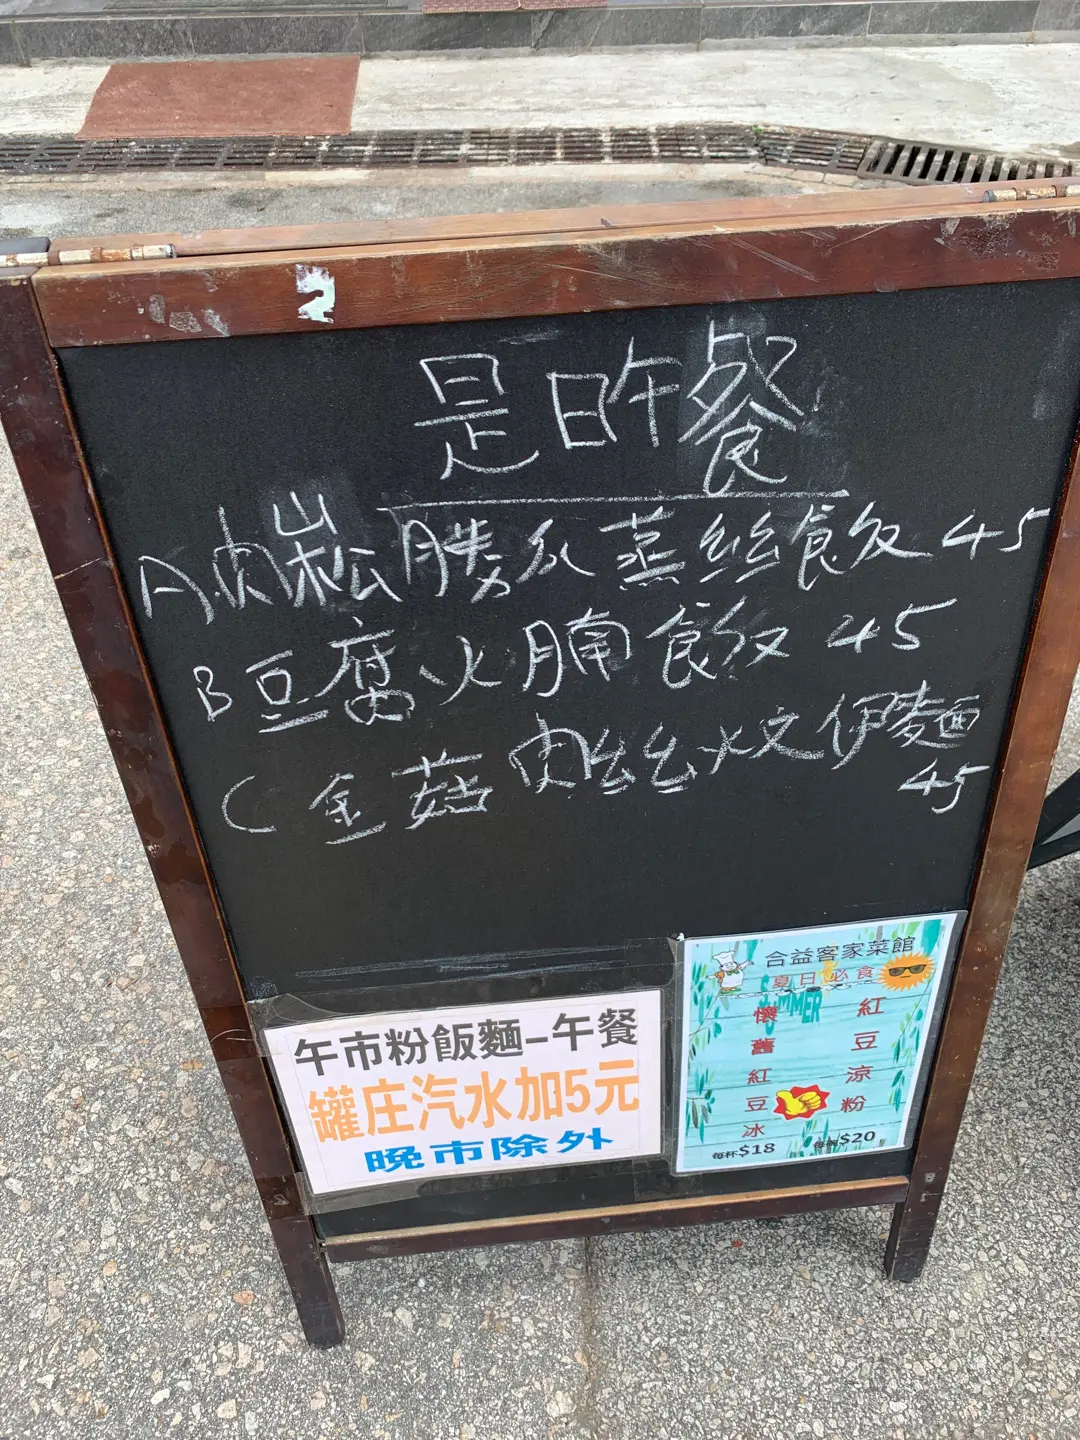 是日午餐
A.肉崧勝瓜蒸粉絲飯 45
B豆腐火腩飯 45
C金菇肉絲炆伊麵
45
午市粉飯麵-午餐
罐庄汽水加5元
晚市除外
合益客家菜館
夏日必食
SUMMER
紅豆涼粉
每碗$20
懷舊紅豆冰
每杯$18